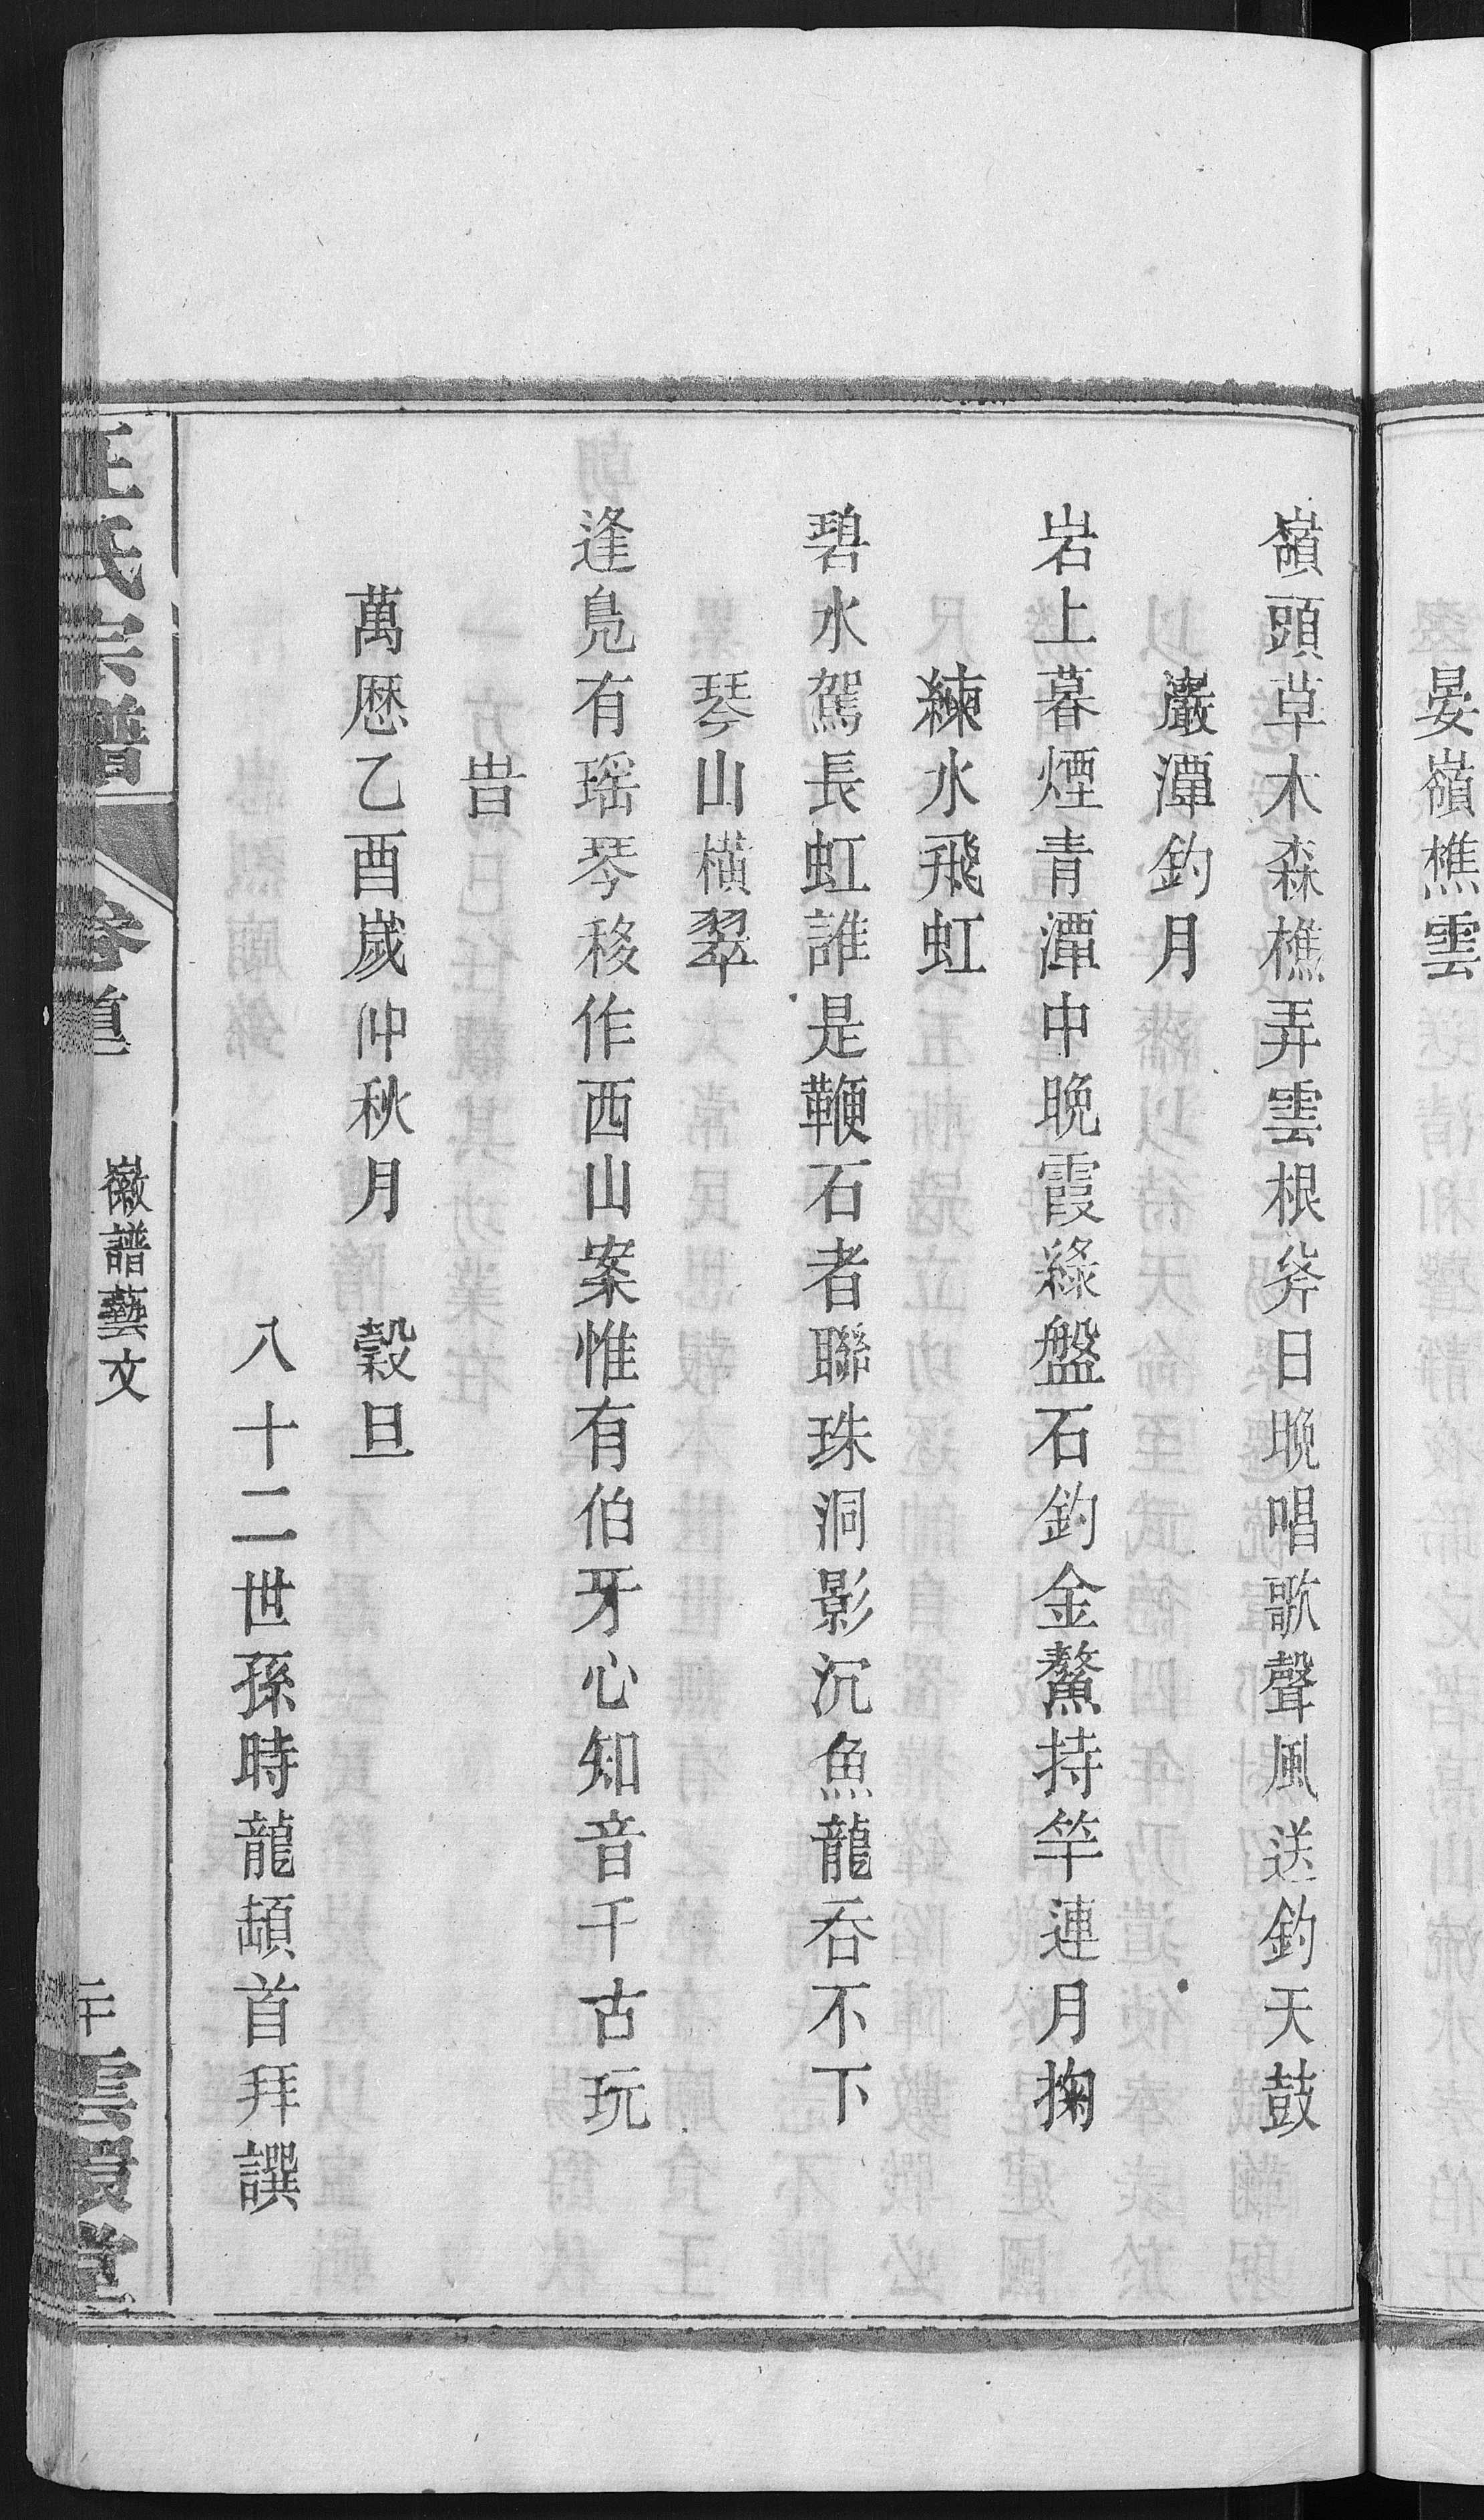 晏嶺樵雲
嶺頭草木森樵弄雲根斧日晚唱歌聲風送釣天鼓
巖潭釣月
岩上暮煙青潭中晚霞綠盤石釣金鰲持竿連月掬
練水飛虹
碧水駕長虹誰是鞭石者聯珠洞影沉魚龍吞不下
琴山橫翠
逢鳬有瑶琴移作西山案惟有伯牙心知音千古玩
旹
萬歷乙酉歲仲秋月　　穀旦
八十二世孫時龍頓首拜譔
汪氏宗譜　卷首　徽譜藝文　二十　雲㵎堂